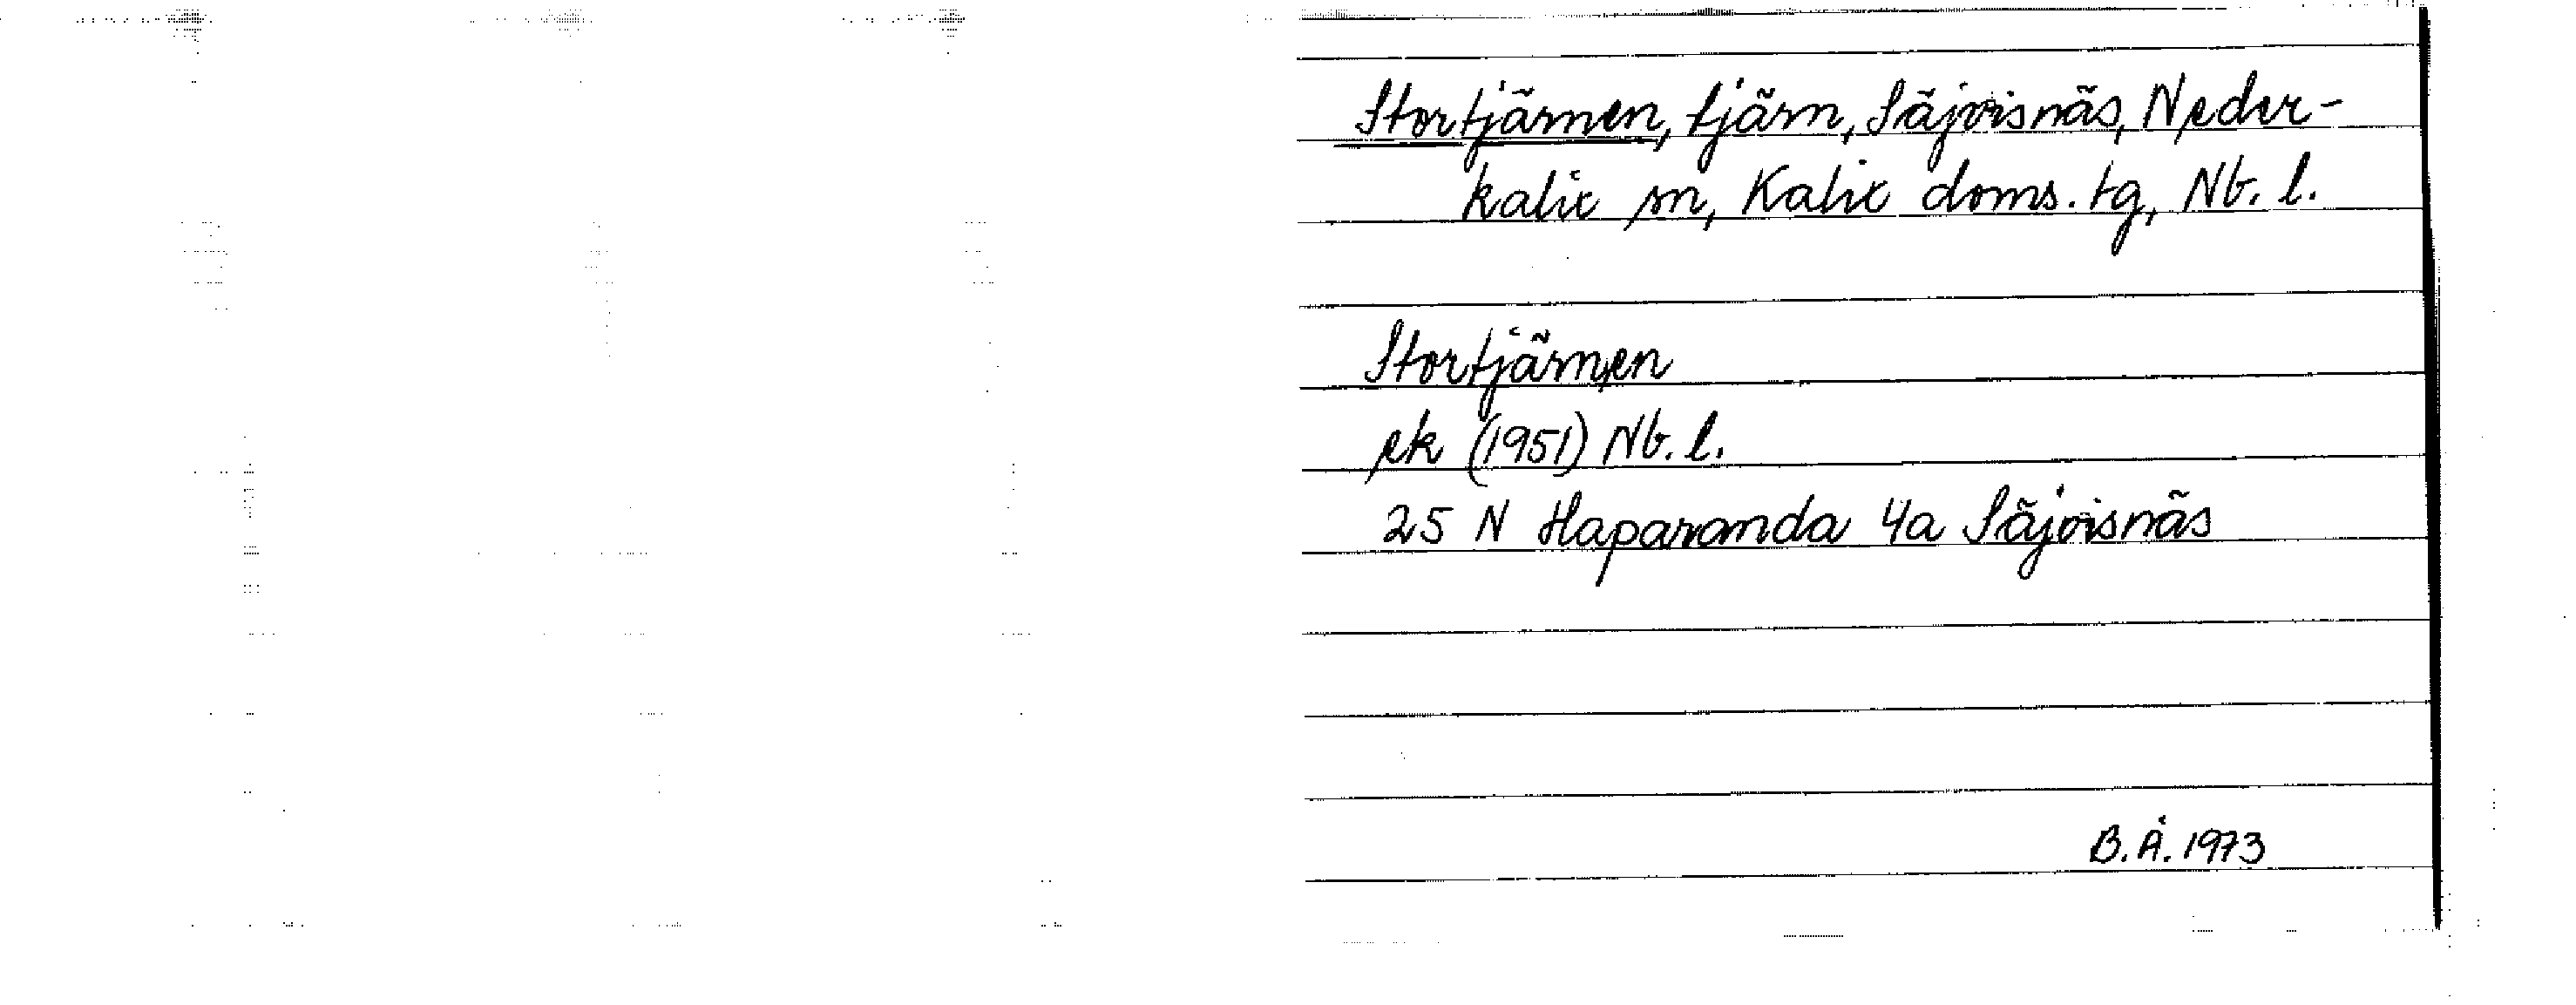 Stortjärnen, tjärn, Säjvisnäs, Neder-
kalix sn, Kalix doms. tg, Nb. l.
Stortjärnen
ek (1951) Nb. l.
25 N Haparanda 4a Säjvisnäs
B. Å. 1973